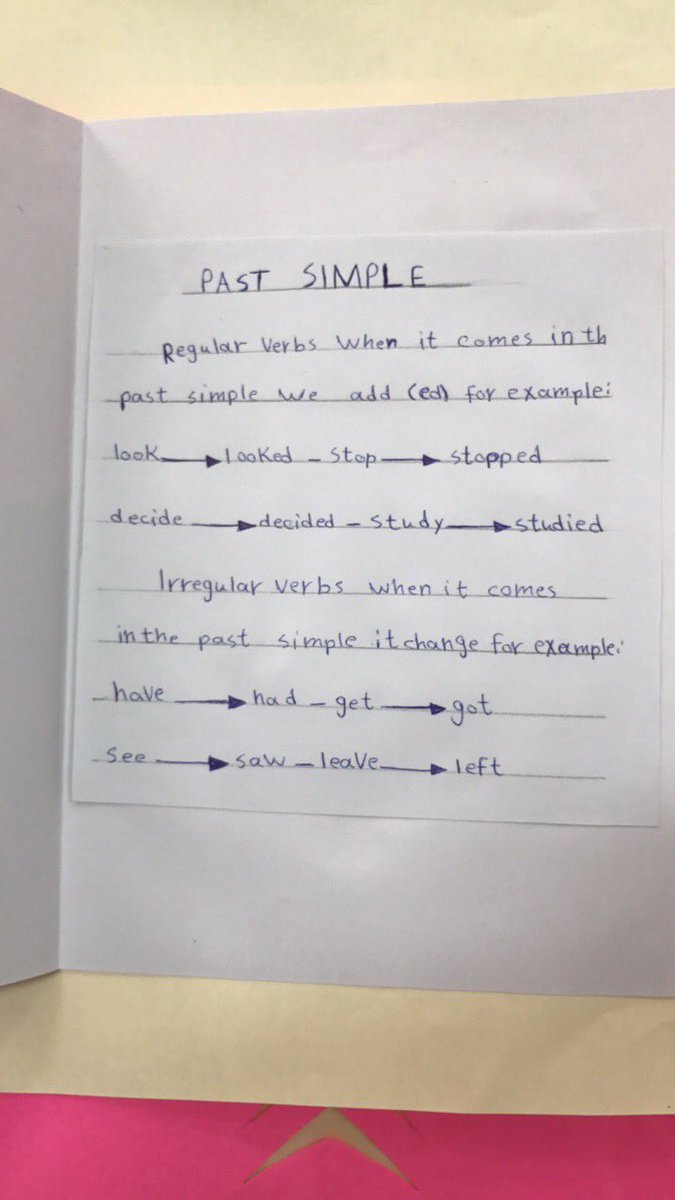 PAST SIMPLE
Regular Verbs when it comes in th
past simple we add (ed) for example:
look → looked - stop → stopped
decide → decided - study → studied
Irregular verbs when it comes
in the past simple it change for example:
have → had - get → got
see → saw - leave → left